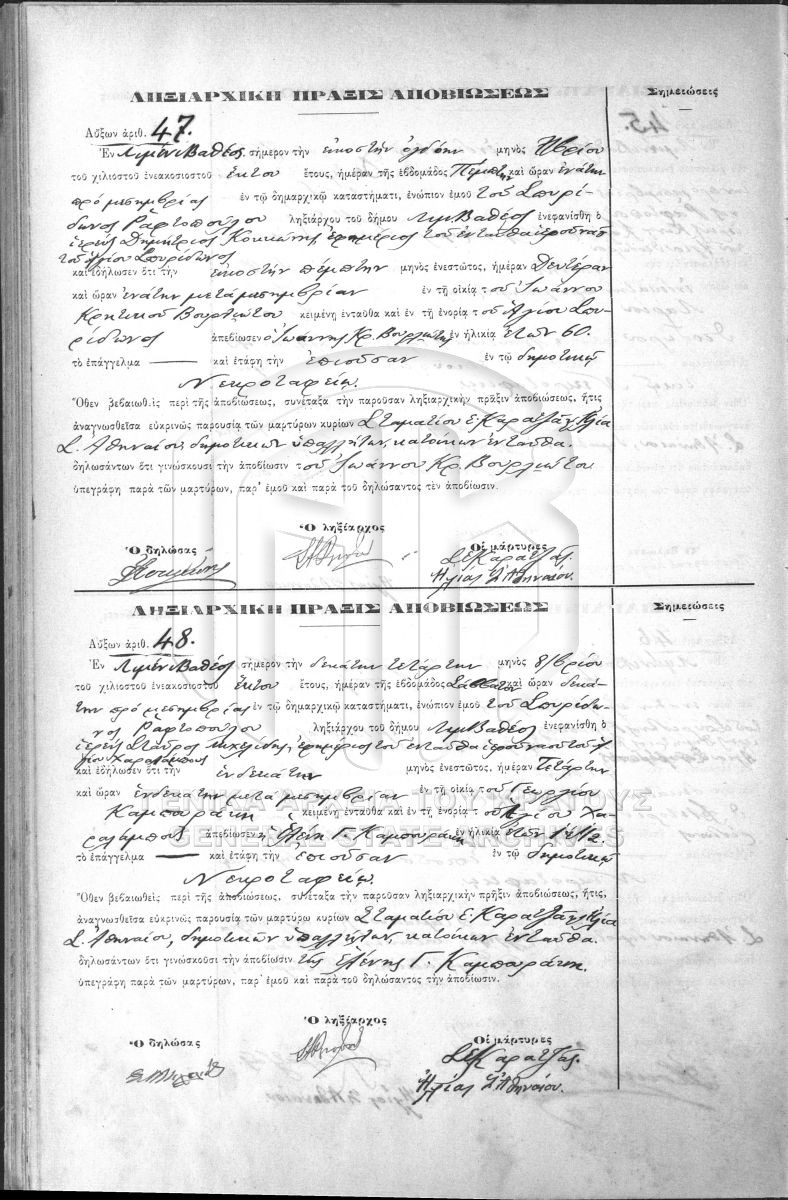 ΛΗΞΙΑΡΧΙΚΗ ΠΡΑΞΙΣ ΑΠΟΒΙΩΣΕΩΣ
Σημειώσεις
Αὔξων ἀριθ. 47.
Ἐν Λιμένι Βαθέος, σήμερον τὴν εἰκοστὴν ὀγδόην μηνὸς
τοῦ χιλιοστοῦ ἐνεακοσιοστοῦ ἕκτου ἔτους, ἡμέραν τῆς ἑβδομάδος Πέμπτην καὶ ὥραν ἐνάτην
πρὸ μεσημβρίας ἐν τῷ δημαρχικῷ καταστήματι, ἐνώπιον ἐμοῦ τοῦ Σπυρί-
δωνος Ραφτοπούλου ληξιάρχου τοῦ δήμου Λιμ. Βαθέος ἐνεφανίσθη ὁ
ἱερεὺς Δημήτριος ἐφημέριος τοῦ ἐνταῦθα ἱεροῦ ναοῦ
τοῦ Ἁγίου Σπυρίδωνος
καὶ ἐδήλωσεν ὅτι τὴν εἰκοστὴν πέμπτην μηνὸς ἐνεστῶτος, ἡμέραν Δευτέραν
καὶ ὥραν ἐνάτην μετὰ μεσημβρίαν ἐν τῇ οἰκίᾳ τοῦ Ἰωάννου
Κρητικοῦ Βουρλιώτου κειμένῃ ἐνταῦθα καὶ ἐν τῇ ἐνορίᾳ τοῦ Ἁγίου Σπυ-
ρίδωνος ἀπεβίωσεν ὁ Ἰωάννης Κρ. Βουρλιώτης ἐν ἡλικίᾳ ἐτῶν 60.
τὸ ἐπάγγελμα — καὶ ἐτάφη τὴν ἐπιοῦσαν ἐν τῷ δημοτικῷ
Νεκροταφείῳ.
Ὅθεν βεβαιωθεὶς περὶ τῆς ἀποβιώσεως, συνέταξα τὴν παροῦσαν ληξιαρχικὴν πρᾶξιν ἀποβιώσεως, ἥτις
ἀναγνωσθεῖσα εὐκρινῶς παρουσίᾳ τῶν μαρτύρων κυρίων Σταματίου Ε. Καρατζᾶ καὶ Ἠλία
Σ. Ἀθηναίου, δημοτικῶν ὑπαλλήλων, κατοίκων ἐνταῦθα.
δηλωσάντων ὅτι γινώσκουσι τὴν ἀποβίωσιν τοῦ Ἰωάννου Κρ. Βουρλιώτου
ὑπεγράφη παρὰ τῶν μαρτύρων, παρ' ἐμοῦ καὶ παρὰ τοῦ δηλώσαντος τὴν ἀποβίωσιν.
Ὁ ληξίαρχος
Ὁ δηλώσας
Οἱ μάρτυρες
Σ. Ε. Καρατζᾶς.
Ἠλίας Σ. Ἀθηναίου.
ΛΗΞΙΑΡΧΙΚΗ ΠΡΑΞΙΣ ΑΠΟΒΙΩΣΕΩΣ
Σημειώσεις
Αὔξων ἀριθ. 48.
Ἐν Λιμένι Βαθέος σήμερον τὴν δεκάτην τετάρτην μηνὸς 8/βρίου
τοῦ χιλιοστοῦ ἐνεακοσιοστοῦ ἕκτου ἔτους, ἡμέραν τῆς ἑβδομάδος Σάββατον καὶ ὥραν δεκά-
την πρὸ μεσημβρίας ἐν τῷ δημαρχικῷ καταστήματι, ἐνώπιον ἐμοῦ τοῦ Σπυρίδω-
νος Ραφτοπούλου ληξιάρχου τοῦ δήμου Λιμ. Βαθέος ἐνεφανίσθη ὁ
ἱερεὺς Σταῦρος Μιχελίδης, ἐφημέριος τοῦ ἐνταῦθα ἱεροῦ ναοῦ τοῦ Ἁ-
γίου Χαραλάμπους
καὶ ἐδήλωσεν ὅτι τὴν ἑνδεκάτην μηνὸς ἐνεστῶτος, ἡμέραν Τετάρτην
καὶ ὥραν ἑνδεκάτην μετὰ μεσημβρίαν ἐν τῇ οἰκίᾳ τοῦ Γεωργίου
Καμπαράκη κειμένῃ ἐνταῦθα καὶ ἐν τῇ ἐνορίᾳ τοῦ Ἁγίου Χα-
ραλάμπους ἀπεβίωσεν ἡ Ἑλένη Γ. Καμπαράκη ἐν ἡλικίᾳ ἐτῶν 1 1/2.
τὸ ἐπάγγελμα — καὶ ἐτάφη τὴν ἐπιοῦσαν ἐν τῷ δημοτικῷ
Νεκροταφείῳ.
Ὅθεν βεβαιωθεὶς περὶ τῆς ἀποβιώσεως, συνέταξα τὴν παροῦσαν ληξιαρχικὴν πρᾶξιν ἀποβιώσεως, ἥτις,
ἀναγνωσθεῖσα εὐκρινῶς παρουσίᾳ τῶν μαρτύρω κυρίων Σταματίου Ε. Καρατζᾶ καὶ Ἠλία
Σ. Ἀθηναίου, δημοτικῶν ὑπαλλήλων, κατοίκων ἐνταῦθα.
δηλωσάντων ὅτι γινώσκουσι τὴν ἀποβίωσιν τῆς Ἑλένης Γ. Καμπαράκη.
ὑπεγράφη παρὰ τῶν μαρτύρων, παρ' ἐμοῦ καὶ παρὰ τοῦ δηλώσαντος τὴν ἀποβίωσιν.
Ὁ ληξίαρχος
Ὁ δηλώσας
Οἱ μάρτυρες
Σ. Ε. Καρατζᾶς.
Ἠλίας Σ. Ἀθηναίου.
ΓΕΝΙΚΑ ΑΡΧΕΙΑ ΤΟΥ ΚΡΑΤΟΥΣ
GENERAL STATE ARCHIVES